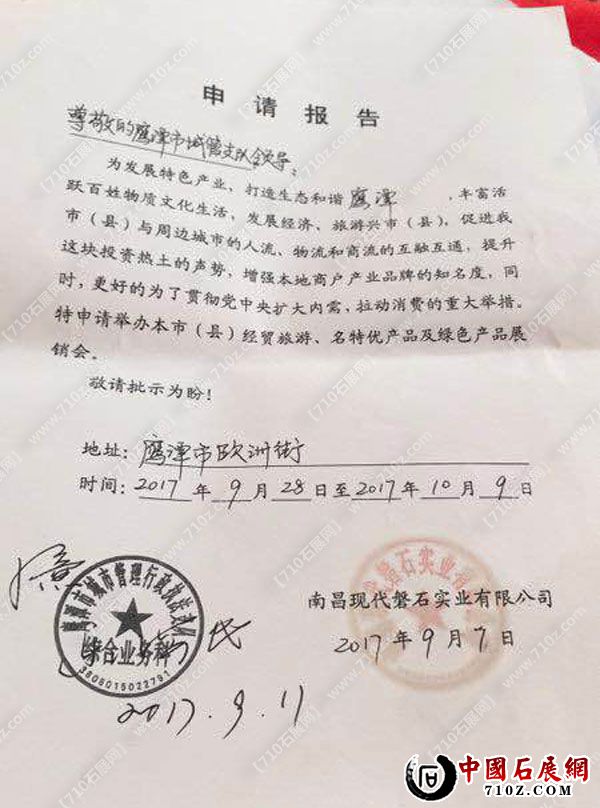 申请报告
尊敬的鹰潭市城管支队领导：
为发展特色产业、打造生态和谐鹰潭，丰富活
跃百姓物质文化生活，发展经济、旅游兴市（县），促进我
市（县）与周边城市的人流、物流和商流的互融互通，提升
这块投资热土的声势，增强本地商户产业品牌的知名度，同
时，更好的为了贯彻党中央扩大内需，拉动消费的重大举措。
特申请举办本市（县）经贸旅游、名特优产品及绿色产品展
销会。
敬请批示为盼！
地址：鹰潭市欧洲街
时间：2017年9月28日至2017年10月9日
鹰潭市城市管理行政执法支队
综合业务科
3806015022791
2017.9.11
南昌现代磐石实业有限公司
2017年9月7日
中國石展網
710Z.COM
【710石展网】
www.710z.com